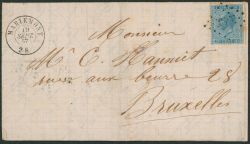 MARIEMONT
19
SEPT
2 S
Monsieur
Mr C. Hanniet
rue aux beurre 28
Bruxelles